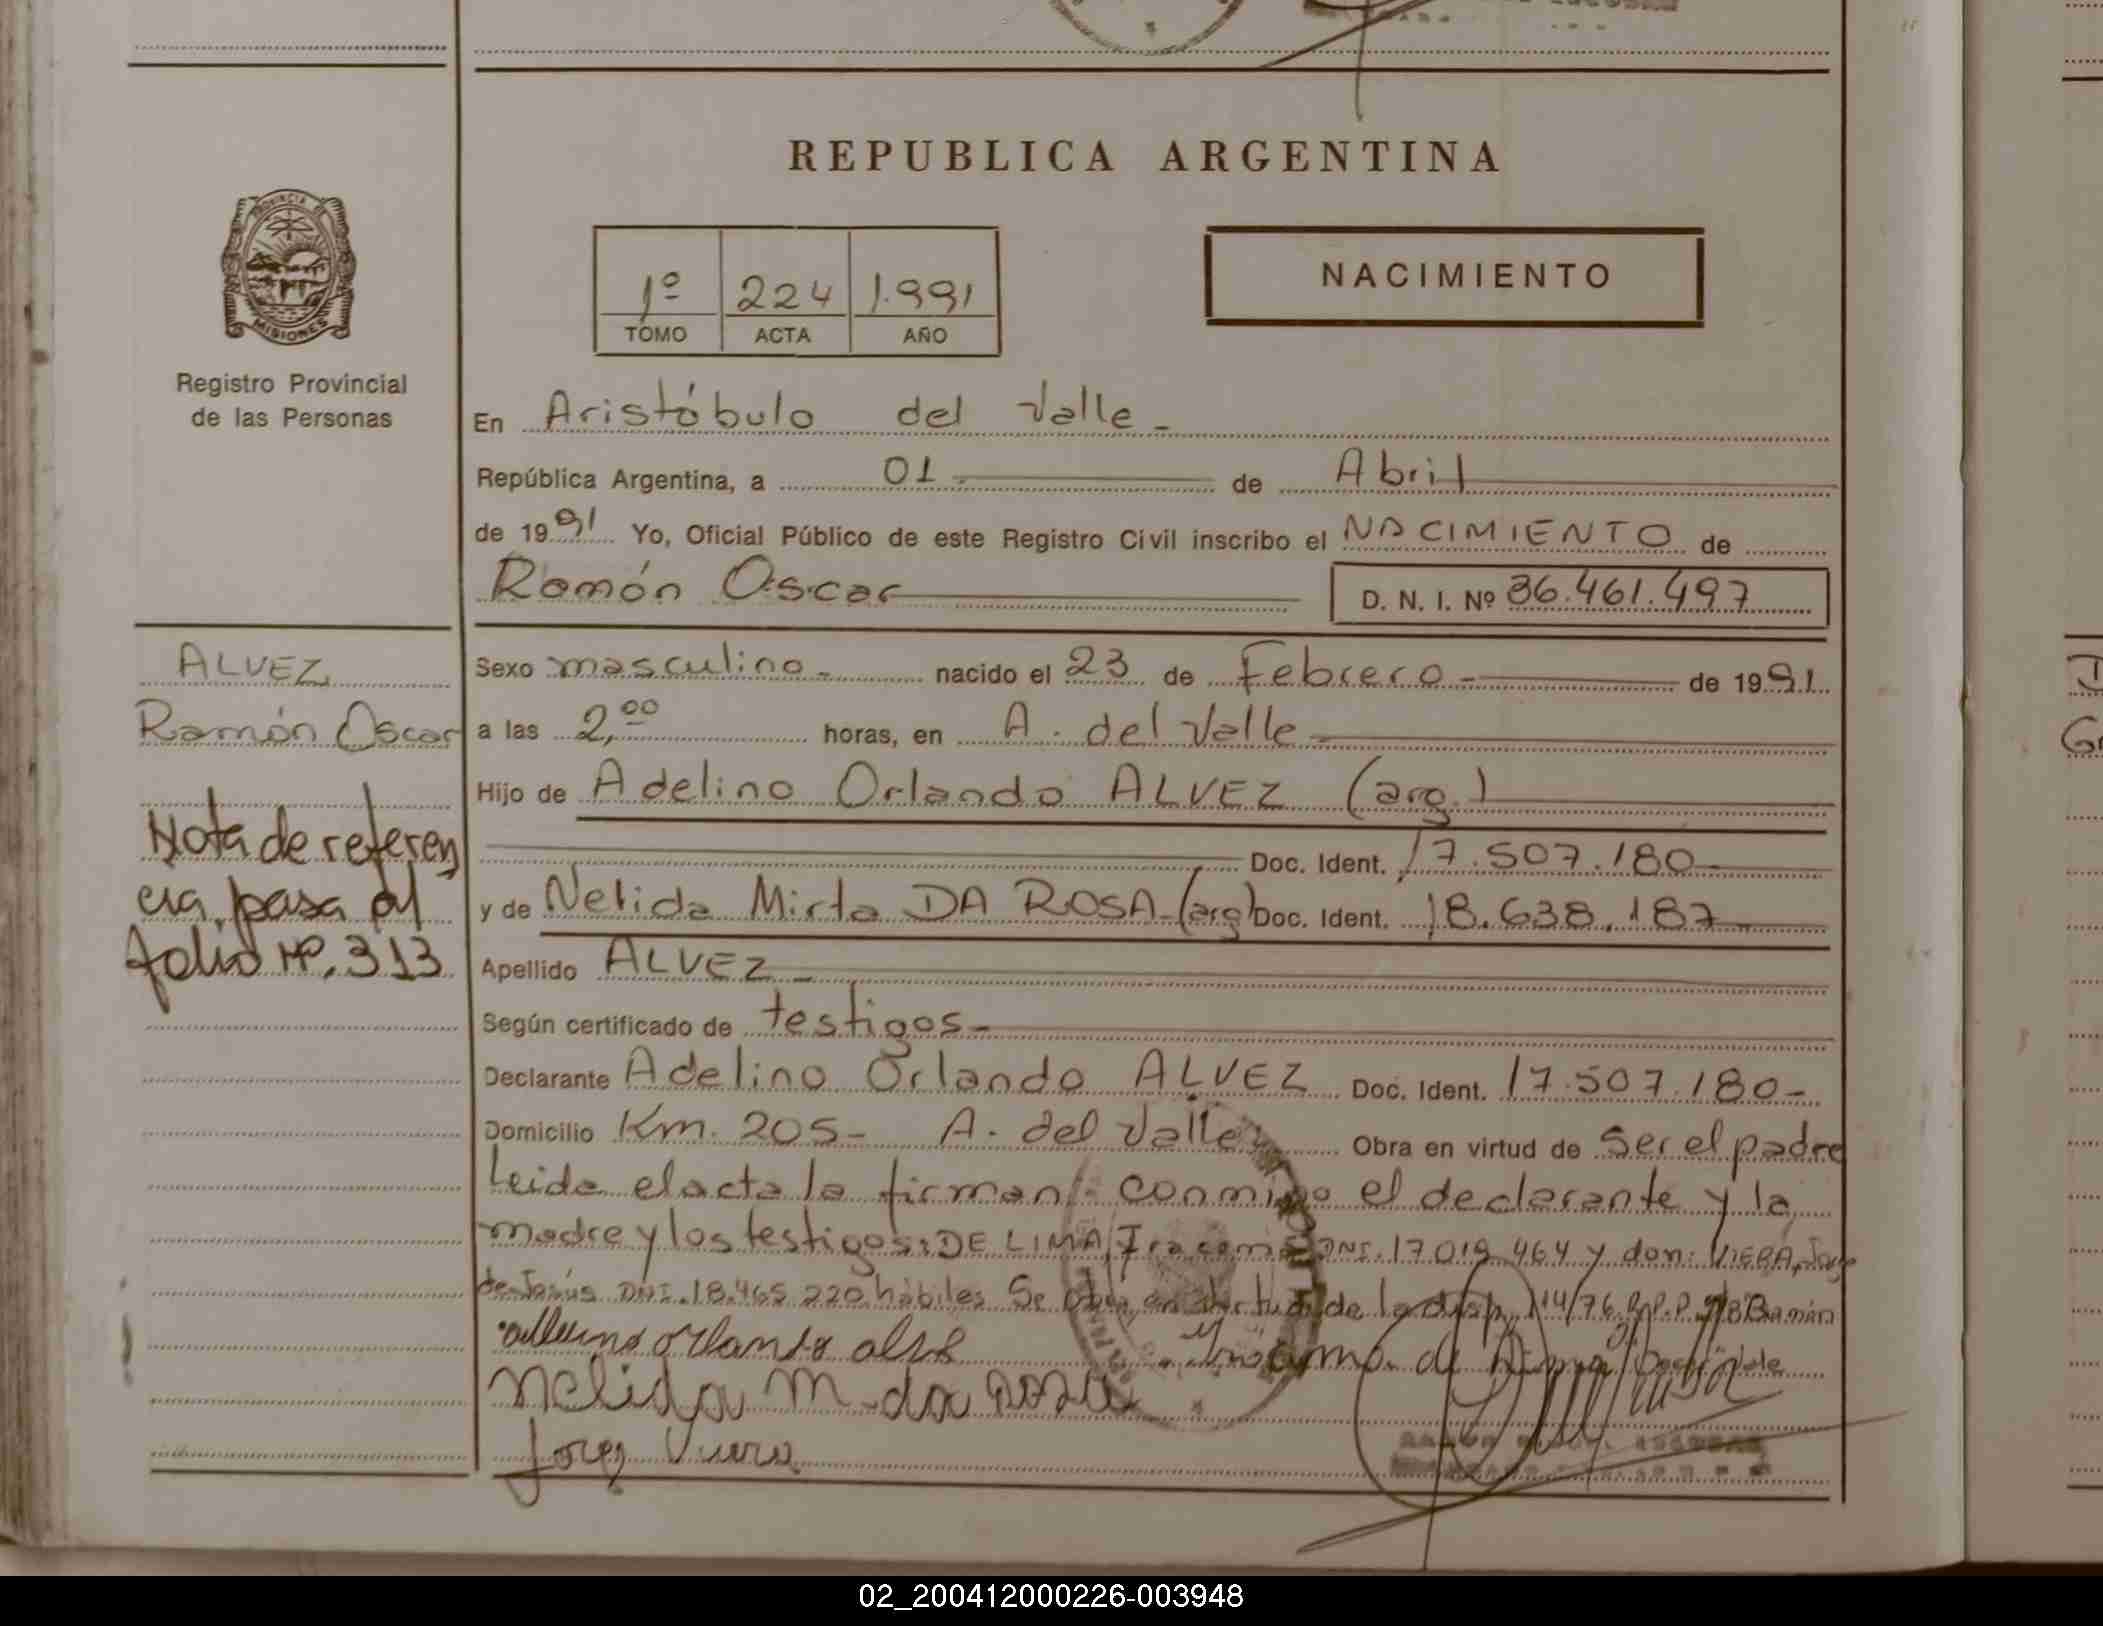 REPUBLICA ARGENTINA
PROVINCIA DE
MISIONES
Registro Provincial
de las Personas
1º 224 1.991
TOMO ACTA AÑO
NACIMIENTO
En Aristóbulo del Valle -
República Argentina, a 01 de Abril
de 1991 Yo, Oficial Público de este Registro Civil inscribo el NACIMIENTO de
Ramón Oscar D. N. I. Nº 36.461.497
ALVEZ
Ramón Oscar
Nota de referen
cia, pasa al
folio Nº. 313
Sexo masculino - nacido el 23 de Febrero - de 1991
a las 2,00 horas, en A. del Valle -
Hijo de Adelino Orlando ALVEZ (arg.)
Doc. Ident. 17.507.180
y de Nelida Mirta DA ROSA - (arg) Doc. Ident. 18.638.187
Apellido ALVEZ -
Según certificado de testigos -
Declarante Adelino Orlando ALVEZ Doc. Ident. 17.507.180 -
Domicilio Km. 205 - A. del Valle Obra en virtud de Ser el padre
Leida el acta la firman conmigo el declarante y la
madre y los testigos: DE LIMA, DNI. 17.019.464 y don: VIERA, Jorge
de Jesús DNI. 18.465.220 hábiles Se en virtud de la disp. 114/76 Ramón
Nelida M. da Rosa
02_200412000226-003948